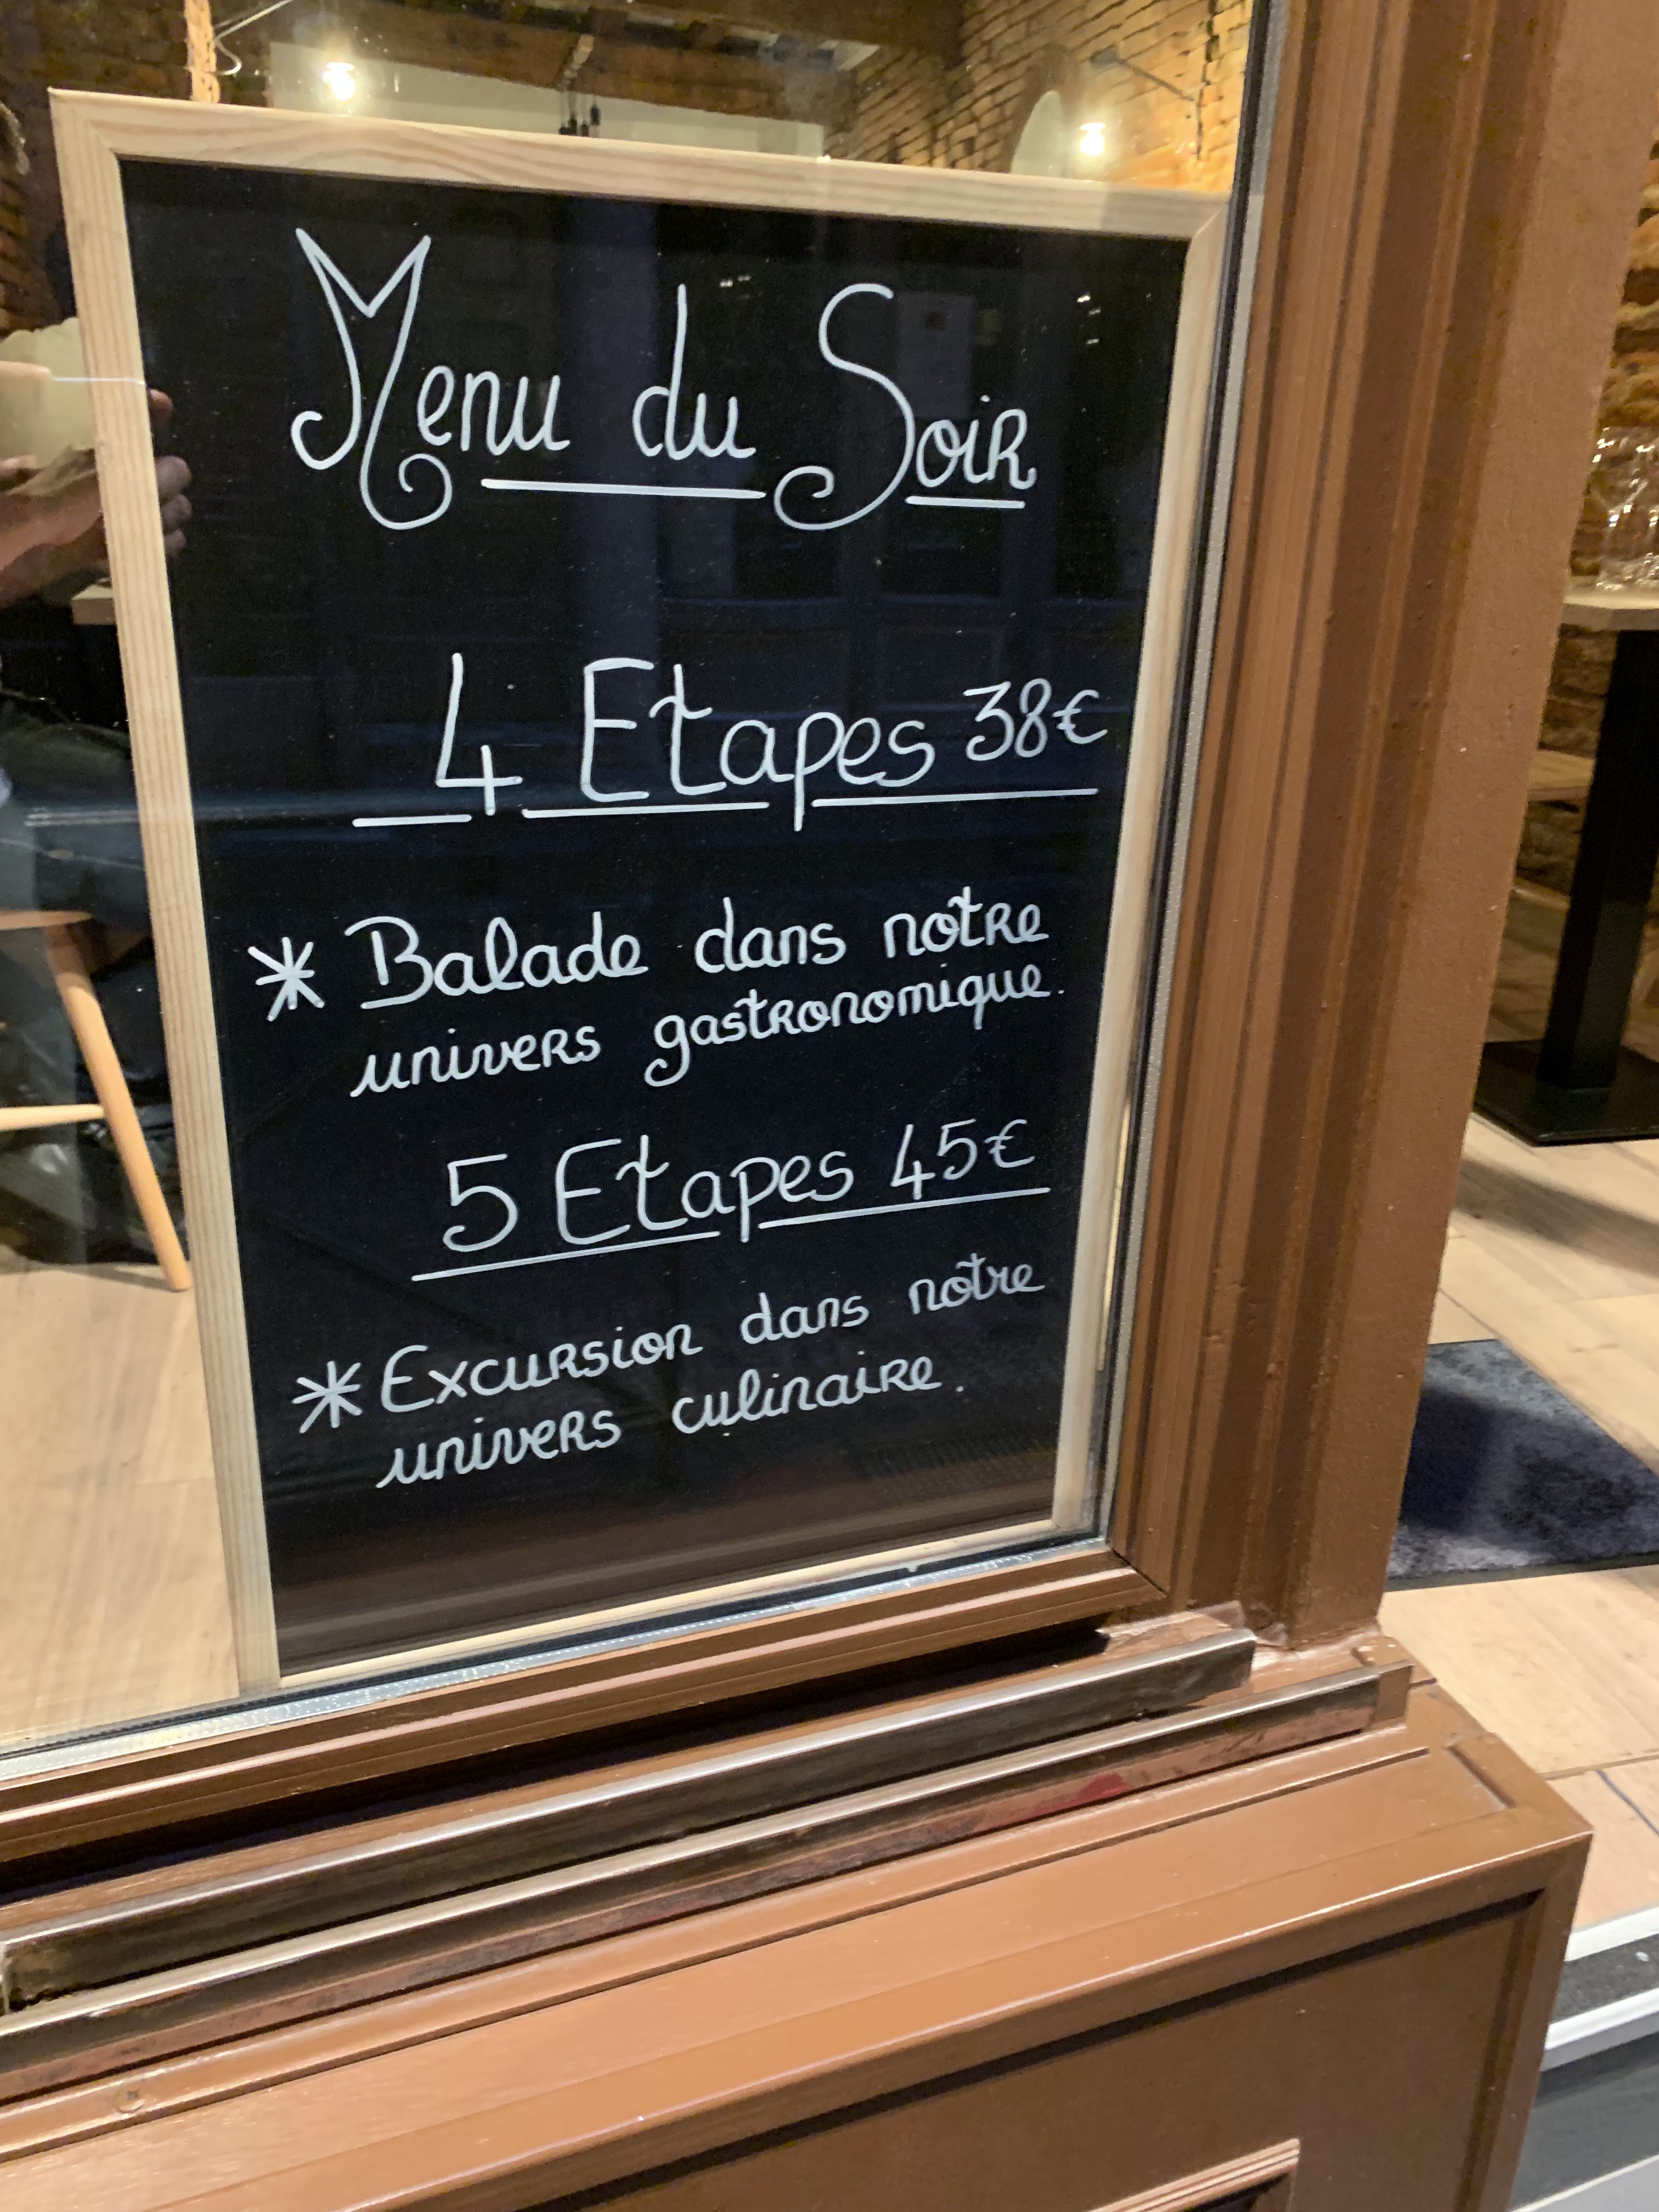 Menu du Soir
4 Etapes 38€
* Balade dans notre
univers gastronomique.
5 Etapes 45€
* Excursion dans notre
univers culinaire.